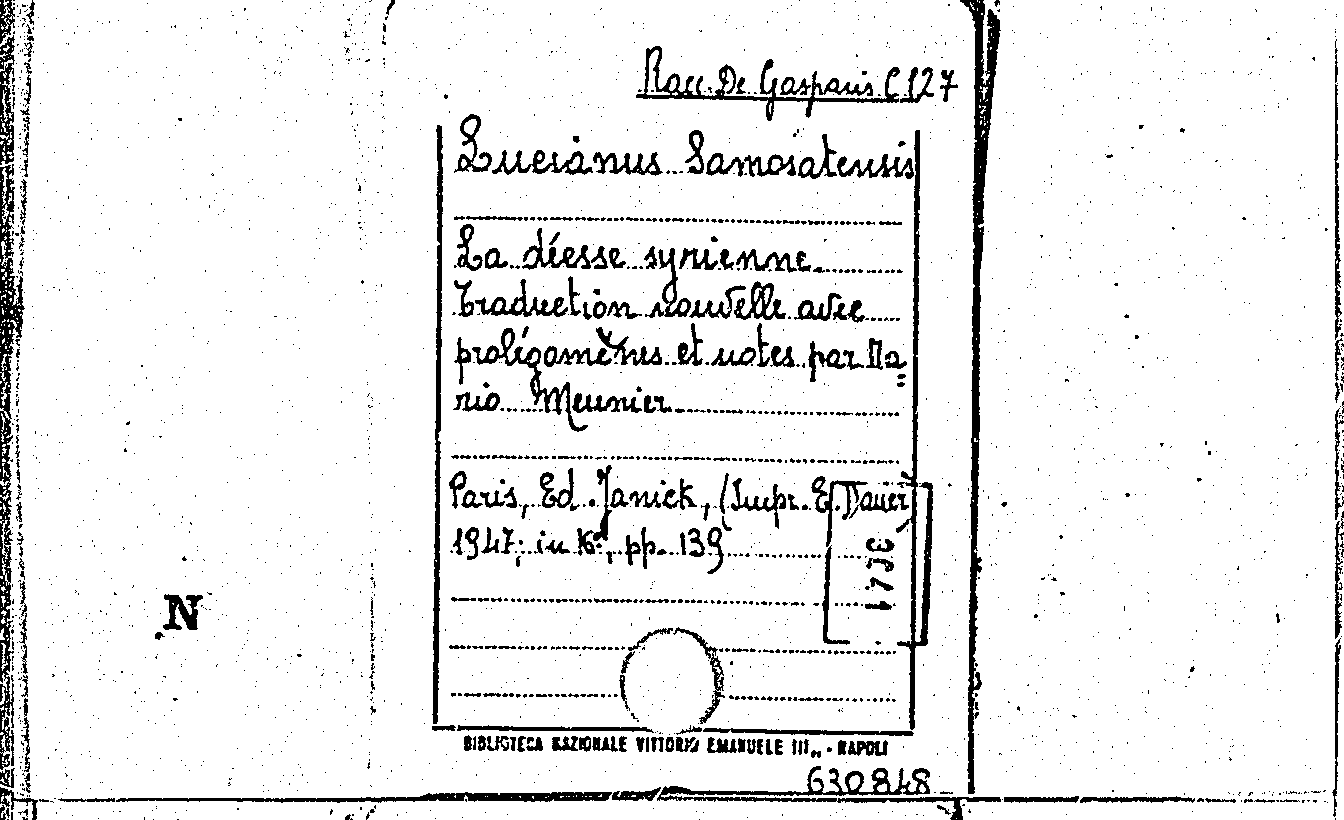 Racc. De Gasparis C 127
Lucianus Samosatensis
La déesse syrienne.
Traduction nouvelle avec
prolégomènes et notes par Ma=
rio Meunier.
Paris, Ed. Janick, (Impr. E. Dauer)
1947; in 16°, pp. 139
N
BIBLIOTECA NAZIONALE VITTORIO EMANUELE III„ - NAPOLI
630848